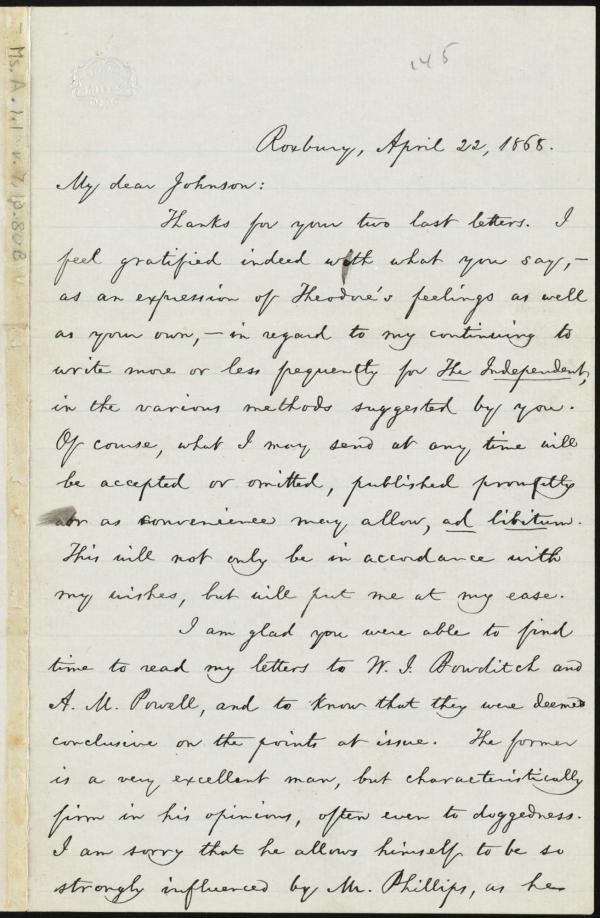 145
Ms. A. 1.1 v. 7, p. 80B
Roxbury, April 22, 1868.
My dear Johnson:
Thanks for your two last letters. I
feel gratified indeed with what you say,—
as an expression of Theodore's feelings as well
as your own,—in regard to my continuing to
write more or less frequently for The Independent,
in the various methods suggested by you.
Of course, what I may send at any time will
be accepted or omitted, published promptly
or as convenience may allow, ad libitum.
This will not only be in accordance with
my wishes, but will put me at my ease.
I am glad you were able to find
time to read my letters to W. I. Bowditch and
A. M. Powell, and to know that they were deemed
conclusive on the points at issue. The former
is a very excellent man, but characteristically
firm in his opinions, often even to doggedness.
I am sorry that he allows himself to be so
strongly influenced by Mr. Phillips, as he